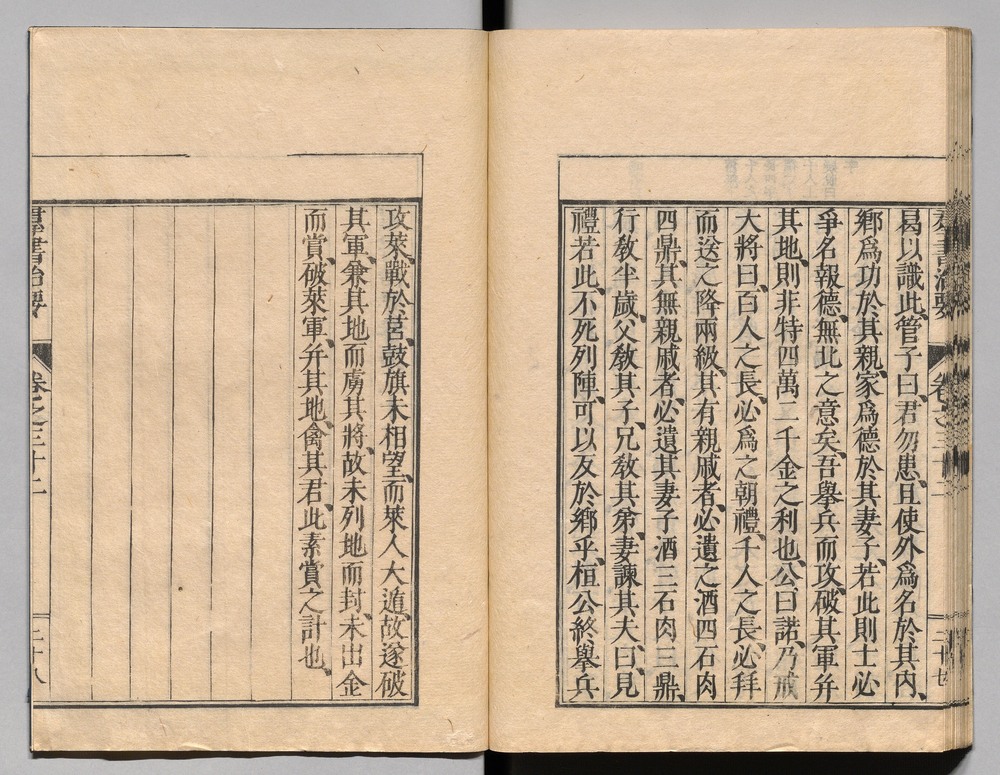 羣書治要 卷之三十二 二十七
曷以識此、管子曰、君勿患、且使外爲名於其内、
鄉爲功於其親、家爲德於其妻子、若此則士必
爭名報德、無北之意矣、吾擧兵而攻、破其軍幷
其地、則非特四萬二千金之利也、公曰諾、乃戒
大將曰、百人之長、必爲之朝禮、千人之長、必拜
而送之、降兩級、其有親戚者、必遺之酒四石肉
四鼎、其無親戚者、必遺其妻子酒三石肉三鼎、
行敎半歲、父敎其子、兄敎其弟、妻諫其夫、曰、見
禮若此、不死列陣、可以反於鄉乎、桓公終擧兵
攻萊、戰於莒、鼓旗未相望、而萊人大遁、故遂破
其軍、兼其地而虜其將、故未列地而封、未出金
而賞、破萊軍、幷其地、禽其君、此素賞之計也、
羣書治要 卷之三十二 二十八